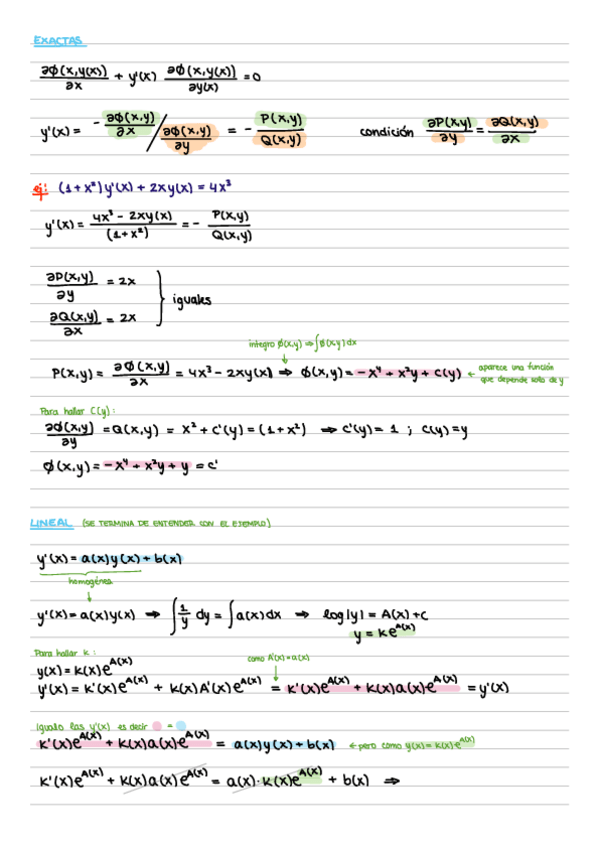 EXACTAS
∂Ø(x,y(x))/∂x + y'(x) ∂Ø(x,y(x))/∂y(x) = 0
y'(x) = - ∂Ø(x,y)/∂x / ∂Ø(x,y)/∂y = - P(x,y)/Q(x,y) condición ∂P(x,y)/∂y = ∂Q(x,y)/∂x
ej: (1+x²)y'(x) + 2xy(x) = 4x³
y'(x) = 4x³ - 2xy(x)/(1+x²) = - P(x,y)/Q(x,y)
∂P(x,y)/∂y = 2x
iguales
∂Q(x,y)/∂x = 2x
integro Ø(x,y) ⇒ ∫Ø(x,y)dx
P(x,y) = ∂Ø(x,y)/∂x = 4x³ - 2xy(x) ⇒ Ø(x,y) = -x⁴ + x²y + C(y) ← aparece una función que depende solo de y
Para hallar C(y):
∂Ø(x,y)/∂y = Q(x,y) = x² + c'(y) = (1+x²) ⇒ c'(y) = 1 ; C(y) = y
Ø(x,y) = -x⁴ + x²y + y = c'
LINEAL (SE TERMINA DE ENTENDER CON EL EJEMPLO)
y'(x) = a(x)y(x) + b(x)
homogénea
y'(x) = a(x)y(x) ⇒ ∫ 1/y dy = ∫ a(x)dx ⇒ log|y| = A(x) + c
y = ke^A(x)
Para hallar k:
y(x) = k(x)e^A(x)
como A'(x) = a(x)
y'(x) = k'(x)e^A(x) + k(x)A'(x)e^A(x) = k'(x)e^A(x) + k(x)a(x)e^A(x) = y'(x)
Igualo las y'(x) es decir =
k'(x)e^A(x) + k(x)a(x)e^A(x) = a(x)y(x) + b(x) ← pero como y(x) = k(x)e^A(x)
k'(x)e^A(x) + k(x)a(x)e^A(x) = a(x)·k(x)e^A(x) + b(x) ⇒